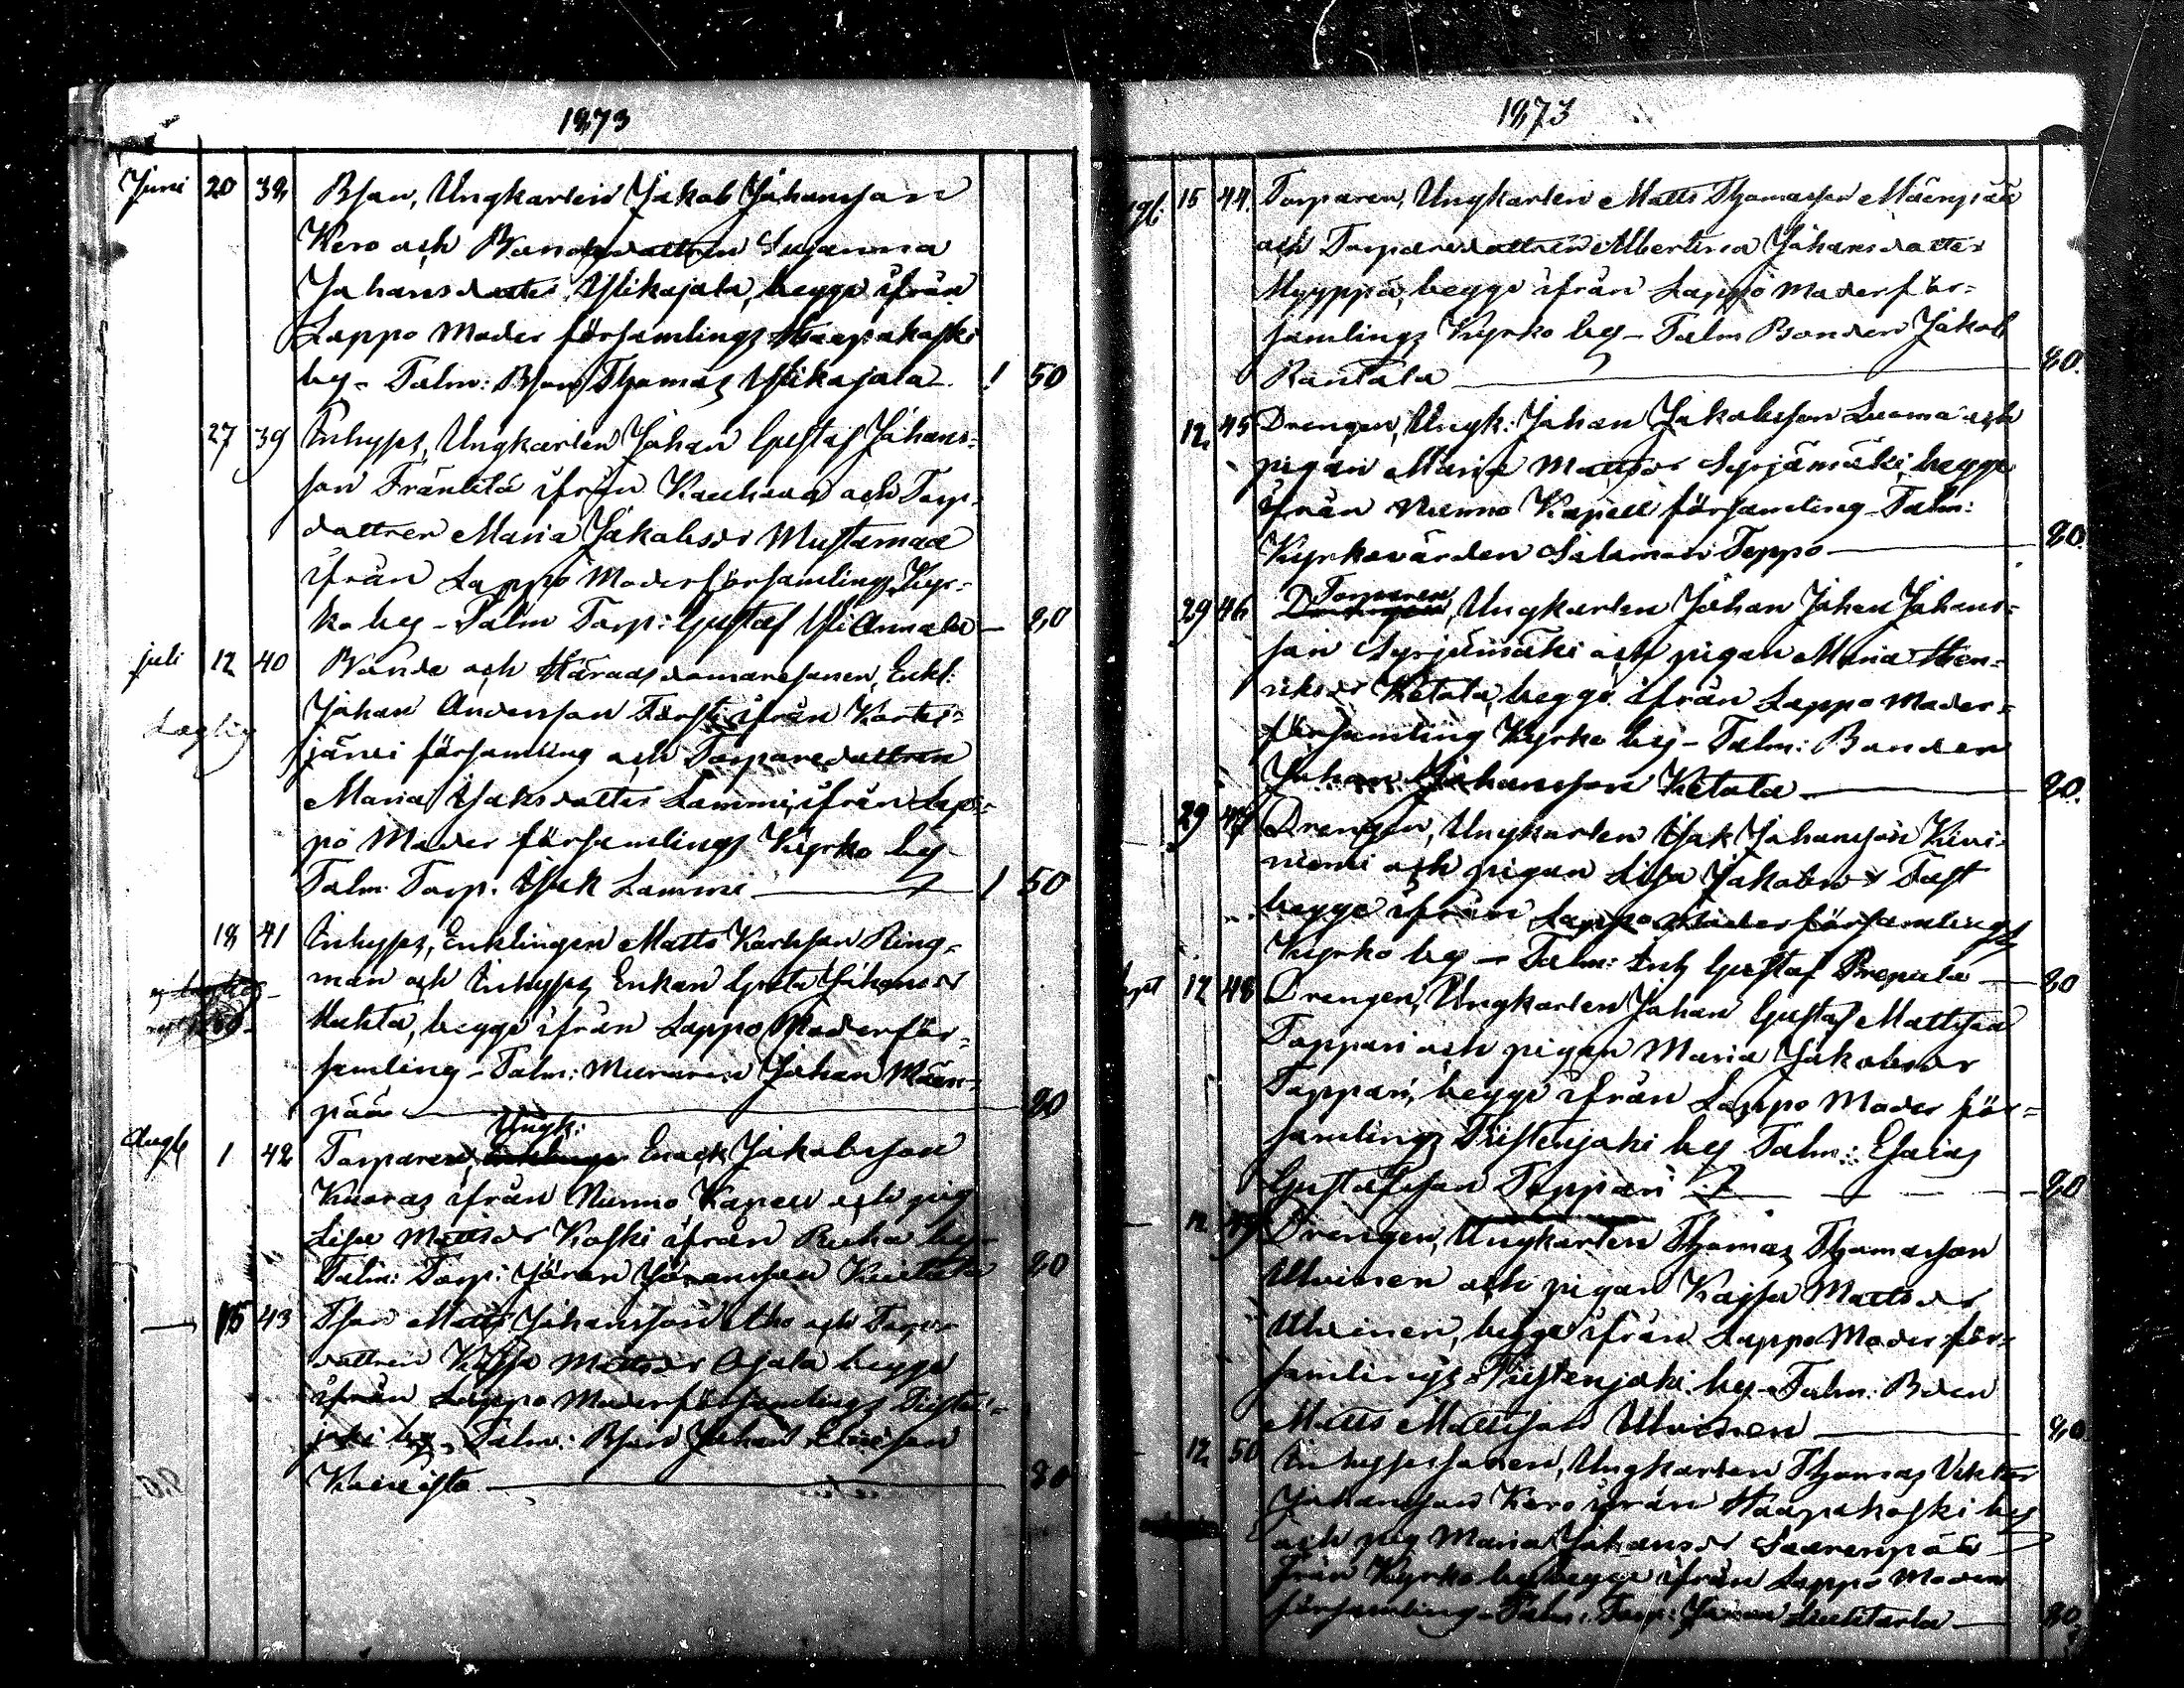 1873
Juni 20 38 Bson, Ungkarlen Jakob Johansson
Kero och Bondedottren Susanna
Johansdotter Ylikojola, begge ifrån
Lappo Moder församlings Haapakoski
by - Talm: Bson Thomas Ylikojola 1 50
27 39 Inhyses, Ungkarlen Johan Gustaf Johans-
son Frantilä ifrån Kauhava och Torp.
dottren Maria Jakobsdr Mustamaa
ifrån Lappo Moderförsamlings Kyr-
ko by - Talm Torp: Gustaf YliAnnala - 80
juli 12 40 Bonde och Häradsdomaresonen, Enkl:
Johan Andersson ifrån Kortes-
Laglig
järvi församling och Torparedottren
Maria Isaksdotter Lammi, ifrån Lap-
po Moder församlings Kyrko by
Talm. Torp. Isak Lammi 1 50
18 41 Inhyses, Enklingen Matts Karlsson Ring-
man och Inhyses Enkan Greta Johansdr
Muhta, begge ifrån Lappo Moderför-
samling - Talm: Muraren Johan Mäen-
pää 80
Ungk:
Aug 1 42 Torparen, Jakobsson
Kuoras ifrån Nurmo Kapell och pig
Lisa Mattsdr Koski ifrån Ruha by
Talm: Torp: Jöran Jöransson 80
15 43 Tson Matts Johansson Aho och Torpar
dottren Kajsa Mattsdr Ojala begge
ifrån Lappo Moderförsamlings Tiisten-
joki by, Talm: Bson Johan
80
1873
15 44. Torparen, Ungkarlen Matts Thomasson Mäenpää
och Torparedottren Albertina Johansdotter
Myyppä, begge ifrån Lappo Moderför-
samlings Kyrko by - Talm Bonden Jakob
Rantala 80.
12 45 Drengen, Ungk: Johan Jakobsson Luoma och
pigan Maria Mattsdr Syrjämäki, begge
ifrån Nurmo Kapell församling - Talm:
Kyrkovärden Salomon Teppo 80.
Torparen
29 46 Drengen, Ungkarlen Johan Johan Johans-
son Syrjämäki och pigan Maria Hen-
riksdr Ketola, begge ifrån Lappo Moder-
församling Kyrko by - Talm: Bonden
Johan Johansson Ketola 80.
29 47 Drengen, Ungkarlen Isak Johansson Kivi-
niemi och pigan Lisa Jakobsdr Tast
begge ifrån Lappo Moder församlings
Kyrko by - Talm: Inh Gustaf 80
Sept 12 48 Drengen, Ungkarlen Johan Gustaf Mattsson
Toppari och pigan Maria Jakobsdr
Toppari, begge ifrån Lappo Moder för-
samlings Tiistenjoki by Talm: Esaias
Gustafsson Toppari 80
12 49 Drengen, Ungkarlen Thomas Thomasson
Ulvinen och pigan Kajsa Mattsdr
Ulvinen, begge ifrån Lappo Moder för-
samlings Tiistenjoki by - Talm. Bden
Matts Mattsson Ulvinen 80.
12 50 Inhysessonen, Ungkarlen Thomas Viktor
Johansson Kero ifrån Haapakoski by
och pig Maria Johansdr Saarenpää
från Kyrko by begge ifrån Lappo Moder
församling - Talm: Torp: Johan 80